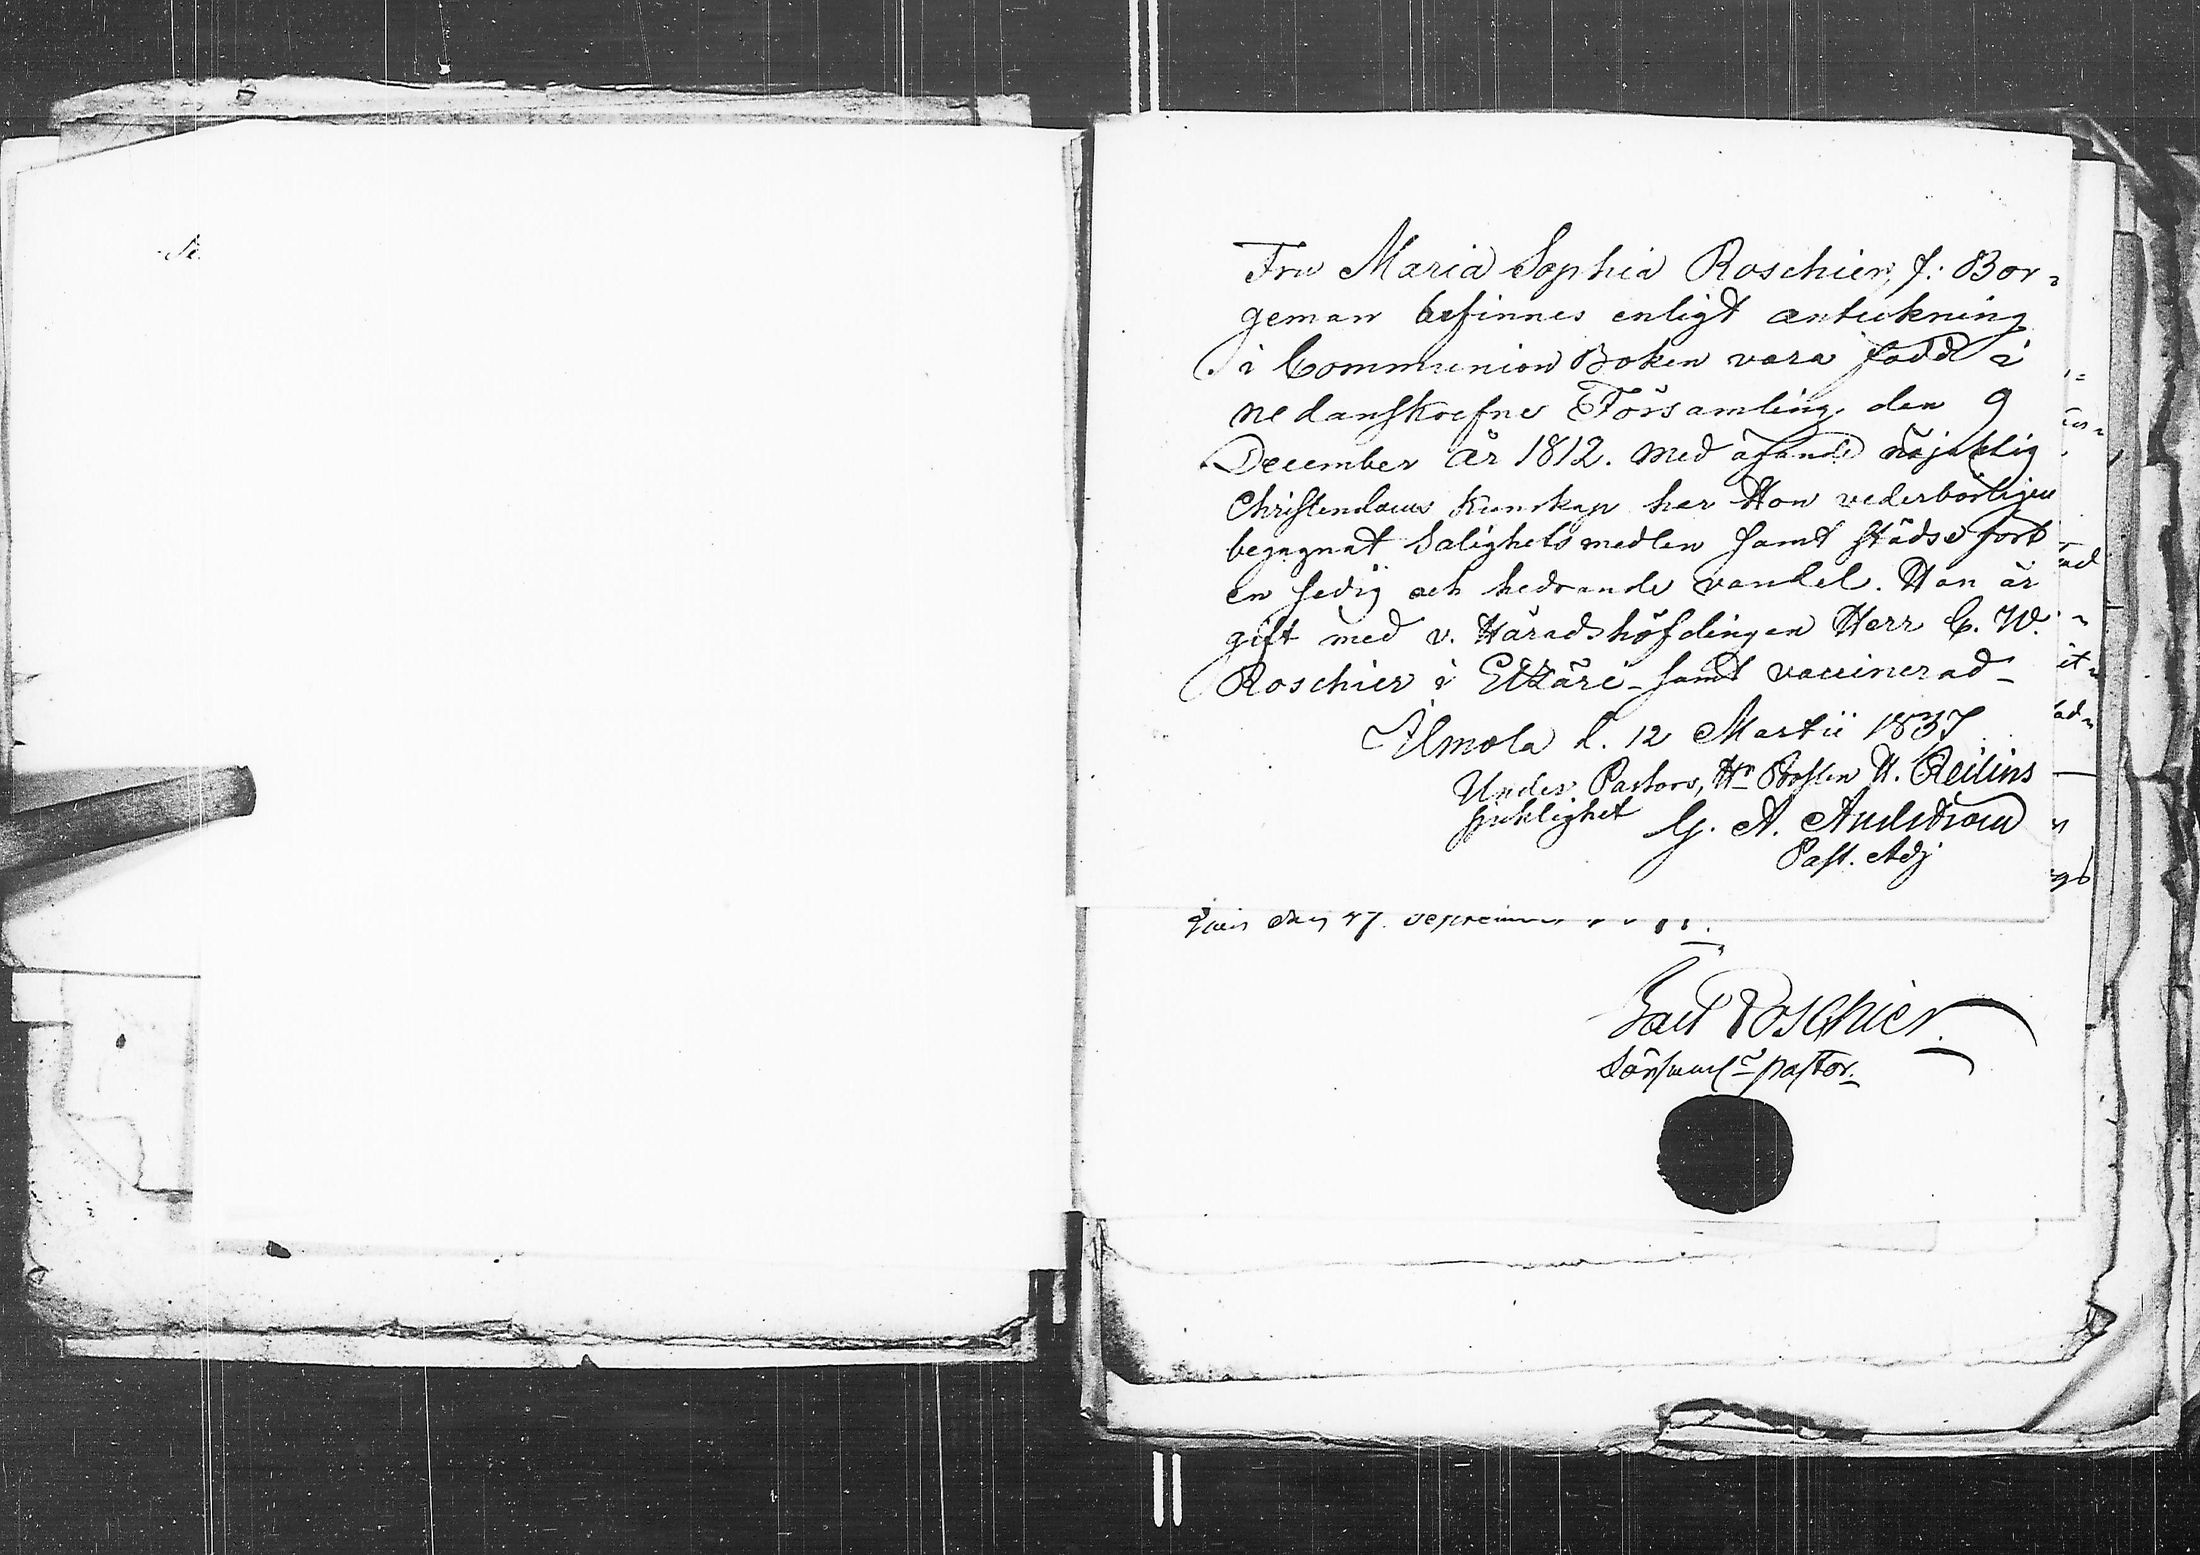 Fru Maria Sophia Roschier, f: Bor-
geman befinnes enligt anteckning
i Communion Boken vara född i
nedanskrefne Församling den 9
December år 1812. Med ägande nöjaktig
Christendoms Kunskap har Hon vederbörligen
begagnat Salighetsmedlen samt städse fört
en sedig och hedrande vandel. Hon är
gift med v. Häradshöfdingen Herr C. W.
Roschier i Etzäri samt vaccinerad
Ilmola d. 12 Martii 1837
Under Pastors, Hr Prosten H. Reilins
sjuklighet G. A.
Past. Adj
den 17
Roschier.
pastor.